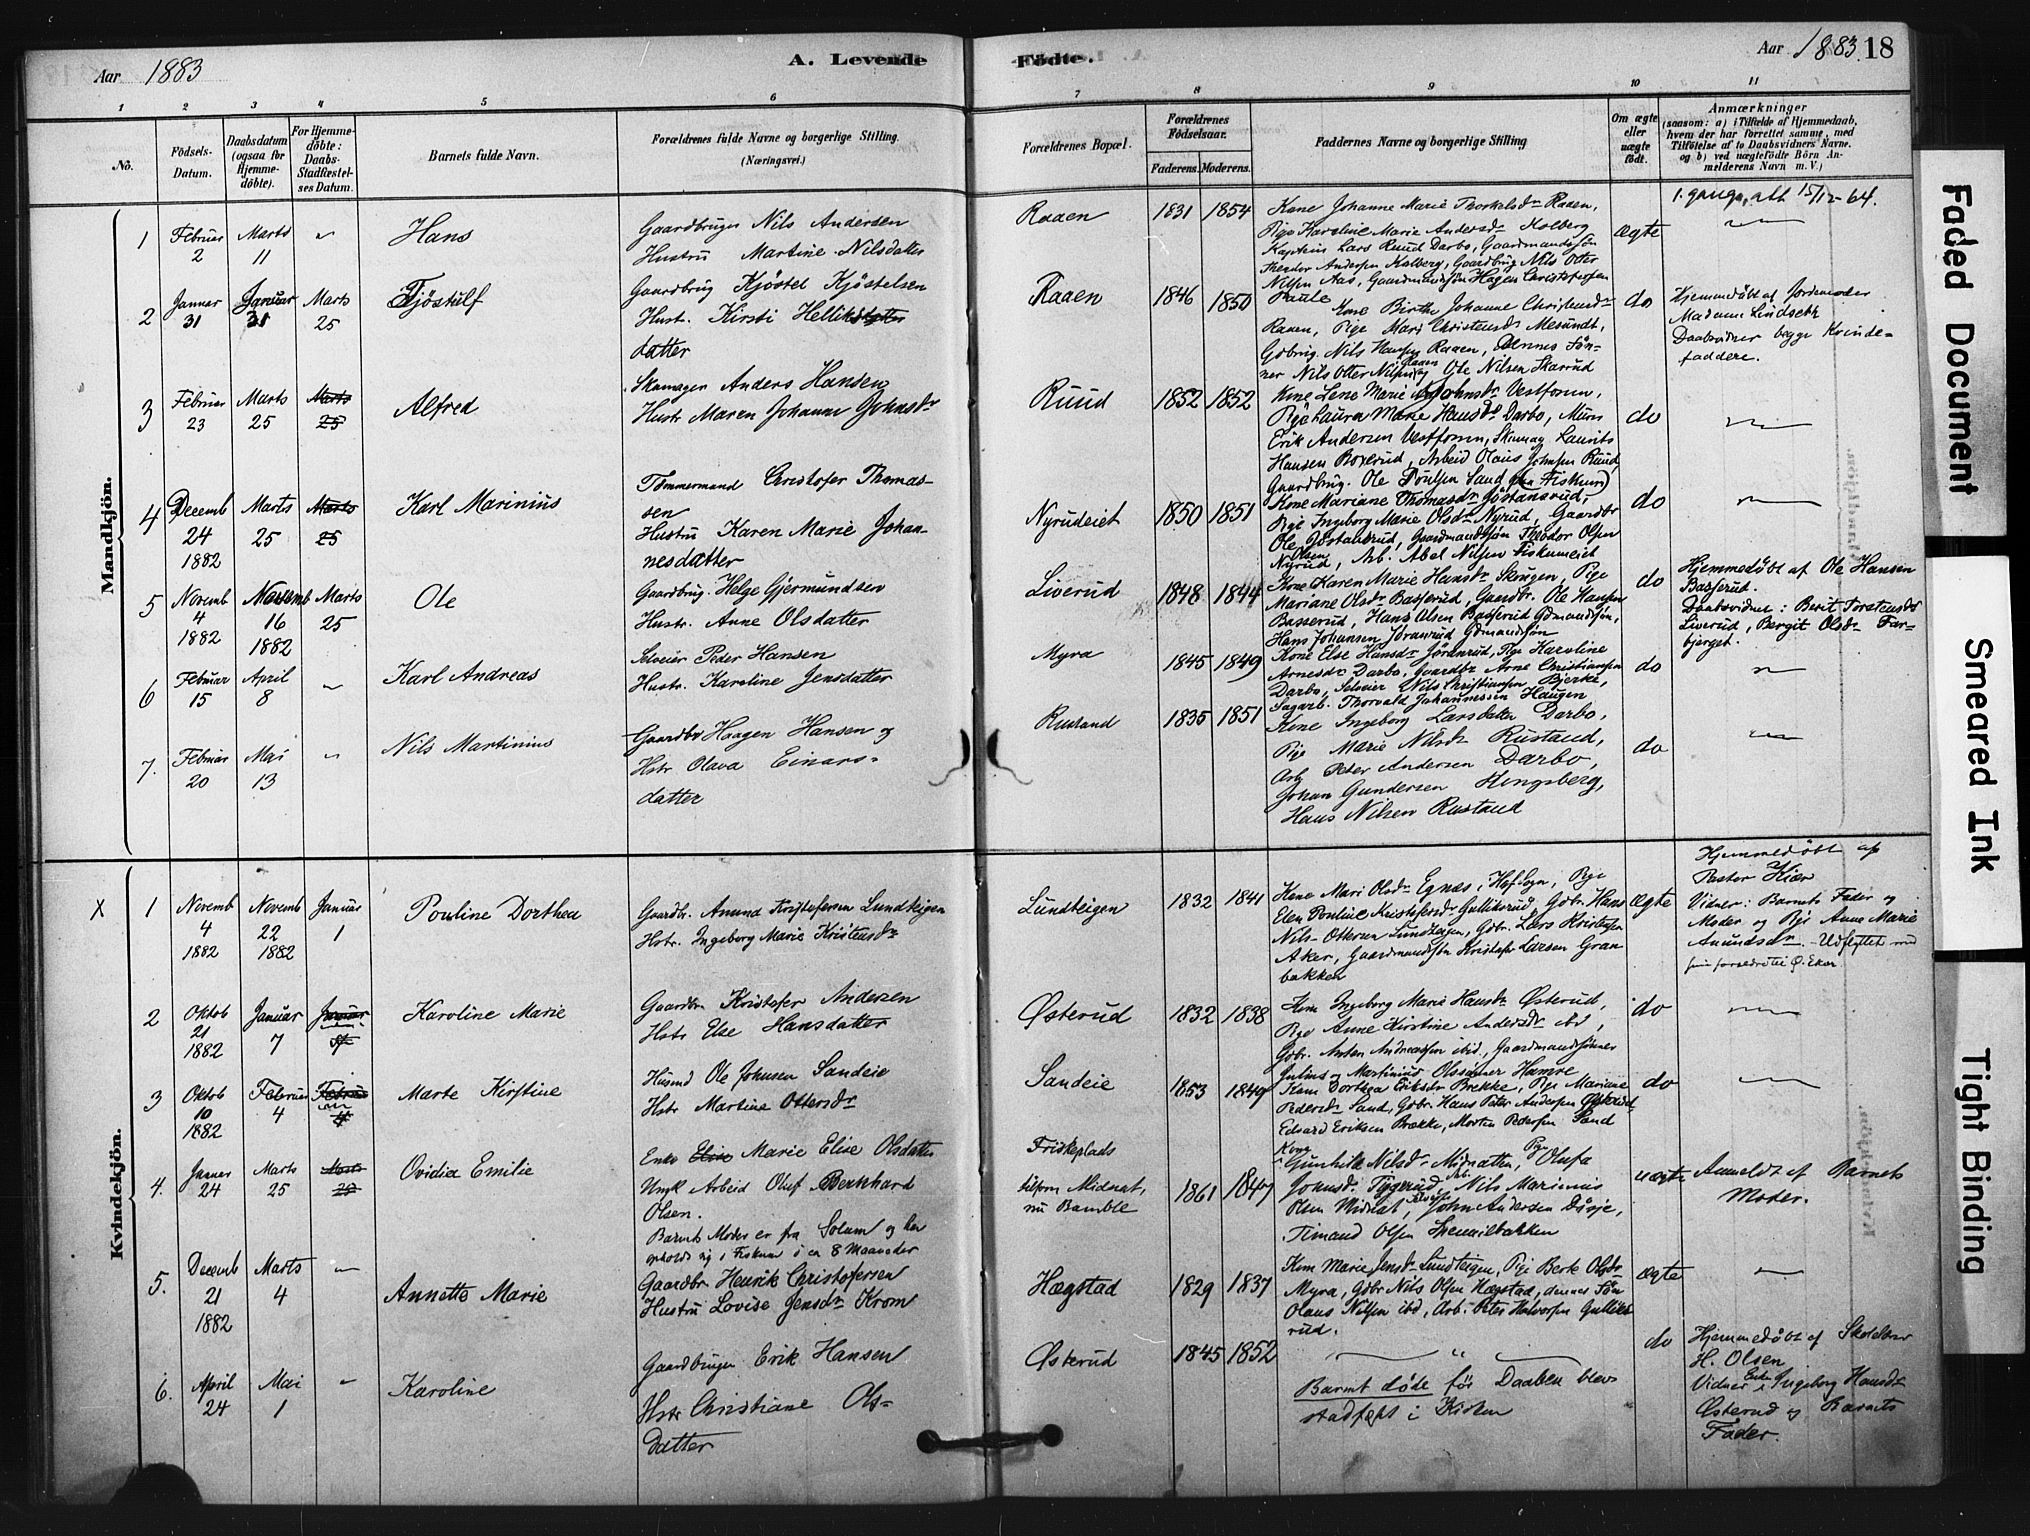 Aar 1883
A. Levende
Fødte.
Aar 1883. 18
1 2 3 4 5 6 7 8 9 10 11
No.
Fødsels-
Datum.
Daabsdatum
(ogsaa for
Hjemme-
døbte).
For Hjemme-
døbte:
Daabs-
Stadfæstel-
ses Datum.
Barnets fulde Navn.
Forældrenes fulde Navne og borgerlige Stilling.
(Næringsvei.)
Forældrenes Bopæl.
Forældrenes
Fødselsaar.
Faderens. Moderens.
Faddernes Navne og borgerlige Stilling
Om ægte
eller
uægte
født.
Anmærkninger
(saasom: a) i Tilfælde af Hjemmedaab,
hvem der har forrettet samme, med
Tilføielse af to Daabsvidners Navne.
og b) ved uægtefødte Børn An-
melderens Navn m. V.)
Mandkjøn.
1 Februar 2 Marts 11 " Hans
Gaardbruger Nils Andersen
Hustru Martine Nilsdatter
Raaen 1831 1854
Kone Johanne Marie Thorkelsdr Raaen,
Pige Karoline Marie Andersdr Kolberg
Kaptein Lars Ruud Darbo, Gaardmandssøn
Theodor Andersen Kolberg, Gaardbrug Nils Otter
Nilsen Aas, Gaardmandssøn Hagen Christofersen
ægte
1. gangs att 15/12-64.
2 Januar 31 Januar 31 Marts 25 Tjøstulf
Gaardbrug Kjøstel Kjøstelsen
Hust. Kirsti Helliks
datter
Raaen 1846 1850
Kone Birthe Johanne Christensdr
Raaen, Pige Mari Christensdr Mesundt,
Gdbrug. Nils Hansen Raaen, Dennes Søn-
ner Nils Otter Nilsen og Ole Nilsen Skarud
do
Hjemmedøbt af Jordemoder
Madame Lindseth
Daabsvidner begge Kvinde-
faddere.
3 Februar 23 Marts 25 Marts 25 Alfred
Skomager Anders Hansen
Hustr Maren Johanne Johnsdr
Ruud 1852 1852
Kone Lene Marie Johnsdr Vestfossen,
Pige Laura Marie Hansdr Darbo, Murer
Erik Andersen Vestfossen, Skomag Laurits
Hansen Boxerud, Arbeid Olaus Johnsen Ruud,
Gaardbrug. Ole Poulsen Sand (fra Fiskum)
do
4 Decemb 24 1882 Marts 25 Marts 25 Karl Marinius
Tømmermand Christofer Thomas-
sen
Hustru Karen Marie Johan-
nesdatter
Nyrudeiet 1850 1851
Kone Mariane Thomasdr Gostansrud,
Pige Ingeborg Marie Olsdr Nyrud, Gaardbr
Ole Gostansrud, Gaardmandssøn Theodor Olsen
Nyrud, Arb. Abel Nilsen Fiskumeiet
do
5 Novemb 4 1882 Novemb 16 1882 Marts 25 Ole
Gaardbrug. Helge Gjermundsen
Hustr. Anne Olsdatter
Liverud 1848 1844
Kone Karen Marie Hansdr Skrugen, Pige
Mariane Olsdr Basserud, Gaardbr. Ole Hansen
Basserud, Hans Olsen Basserud Gdmandssøn,
Hans Johansen Jøranrud Gdmandssøn
do
Hjemmedøbt af Ole Hansen
Basserud.
Daabsvidner: Berit Torstensdr
Liverud, Bergit Olsdr Far-
bjerget.
6 Februar 15 April 8 " Karl Andreas
Selveier Peder Hansen
Hustr. Karoline Jensdatter
Myra 1845 1849
Kone Else Hansdr Jøranrud, Pige Karoline
Arnesdr Darbo, Gaardbr Arne Christiansen
Darbo, Selveier Nils Christiansen Bjerke,
Sagarb. Thorvald Johannessen Haugen
do
7. Februar 20 Mai 13 " Nils Martinius
Gaardbr Haagen Hansen og
Hstr Olava Einars-
datter
Rustand 1835 1851
Kone Ingeborg Larsdatter Darbo,
Pige Marie Nilsdr Rustand,
Arb Peter Andersen Darbo,
Johan Gundersen Hengsberg,
Hans Nilsen Rustand
do
Kvindekjøn.
X 1 Novemb 4 1882 Novemb 22 1882 Januar 1 Pouline Dorthea
Gaardbr. Amund Kristofersen Lundteigen
Hstr. Ingeborg Marie Kristensdr
Lundteigen 1832 1841
Kone Mari Olsdr Egnæs, Hof Sogn, Pige
Elen Pouline Kristofersdr Gulliksrud, Gdbr. Hans
Nils Ottersen Lundteigen, Gdbr. Lars Kristensen
Aker, Gaardmandssøn Kristofer Larsen Gran
bakken
ægte
Hjemmedøbt af
Pastor Kiær
Vidner: Barnets Fader og
Moder og Pige Anne Marie
Amundsdr. - Udflyttet med
sine forældre til Ø. Eker
2 Oktob 21 1882 Januar 7 Januar 7 Karoline Marie
Gaardbr. Kristofer Andersen
Hstr Else Hansdatter
Østerud 1832 1838
Kone Ingeborg Marie Hansdr Østerud,
Pige Anne Kirstine Andersdr ibd,
Gdbr. Anten Andreassen ibid., Gaardmandssønner
Julius og Martinius Olssønner Hamre
do
3 Oktob 10 1882 Februar 4 Februar 4 Marte Kirstine
Husmd Ole Johnsen Sandeie
Hstr Martine Ottersdr
Sandeie 1853 1849
Kone Dorthea Eriksdr Brekke, Pige Mariane
Pedersdr Sand, Gdbr. Hans Peter Andersen Østerud,
Edvard Eriksen Brække, Morten Pedersen Sand
do
4. Januar 24 Marts 25 Marts 25 Ovidia Emilie
Enke Elise Marie Elise Olsdatter
Ungk Arbeid Oluf Bernhard
Olsen.
Barnets Moder er fra Solum og har
opholdt sig i Fiskum i ca 8 Maaneder
Friskeplads
tilforn Midnat,
nu Bamble
1861 1847
Kone Gunhild Nilsdr Midnatten, Pige Olufa
Johnsdr Tygerud, Arb. Nils Marinius
Olsen Midnat, John Andersen Dørje,
Timand Olsen Spennilbakken
uægte
Anmeldt af Barnets
Moder.
5. Decemb 21 1882 Marts 4 " Annette Marie
Gaardbr Henrik Christofersen
Hustru Lovise Jensdr Krom
Hægstad 1829 1837
Kone Marie Jensdr Lundteigen, Pige Berte Olsdr
Myra, Gdbr Nils Olsen Hægstad, dennes Søn
Olaus Nilsen ibd, Arb. Otter Halvorsen Gulliks
rud.
ægte
6. April 24 Mai 1 " Karoline
Gaardbruger Erik Hansen
Hstr Christiane Ols-
datter
Østerud 1845 1852
"
Barnet døde før Daaben blev
stadfæst i Kirken
do
Hjemmedøbt af Skoleholder
H. Olsen
Vidner Enke Ingeborg Hansdr
Østerud og Barnets
Fader.
Faded Document
Smeared Ink
Tight Binding